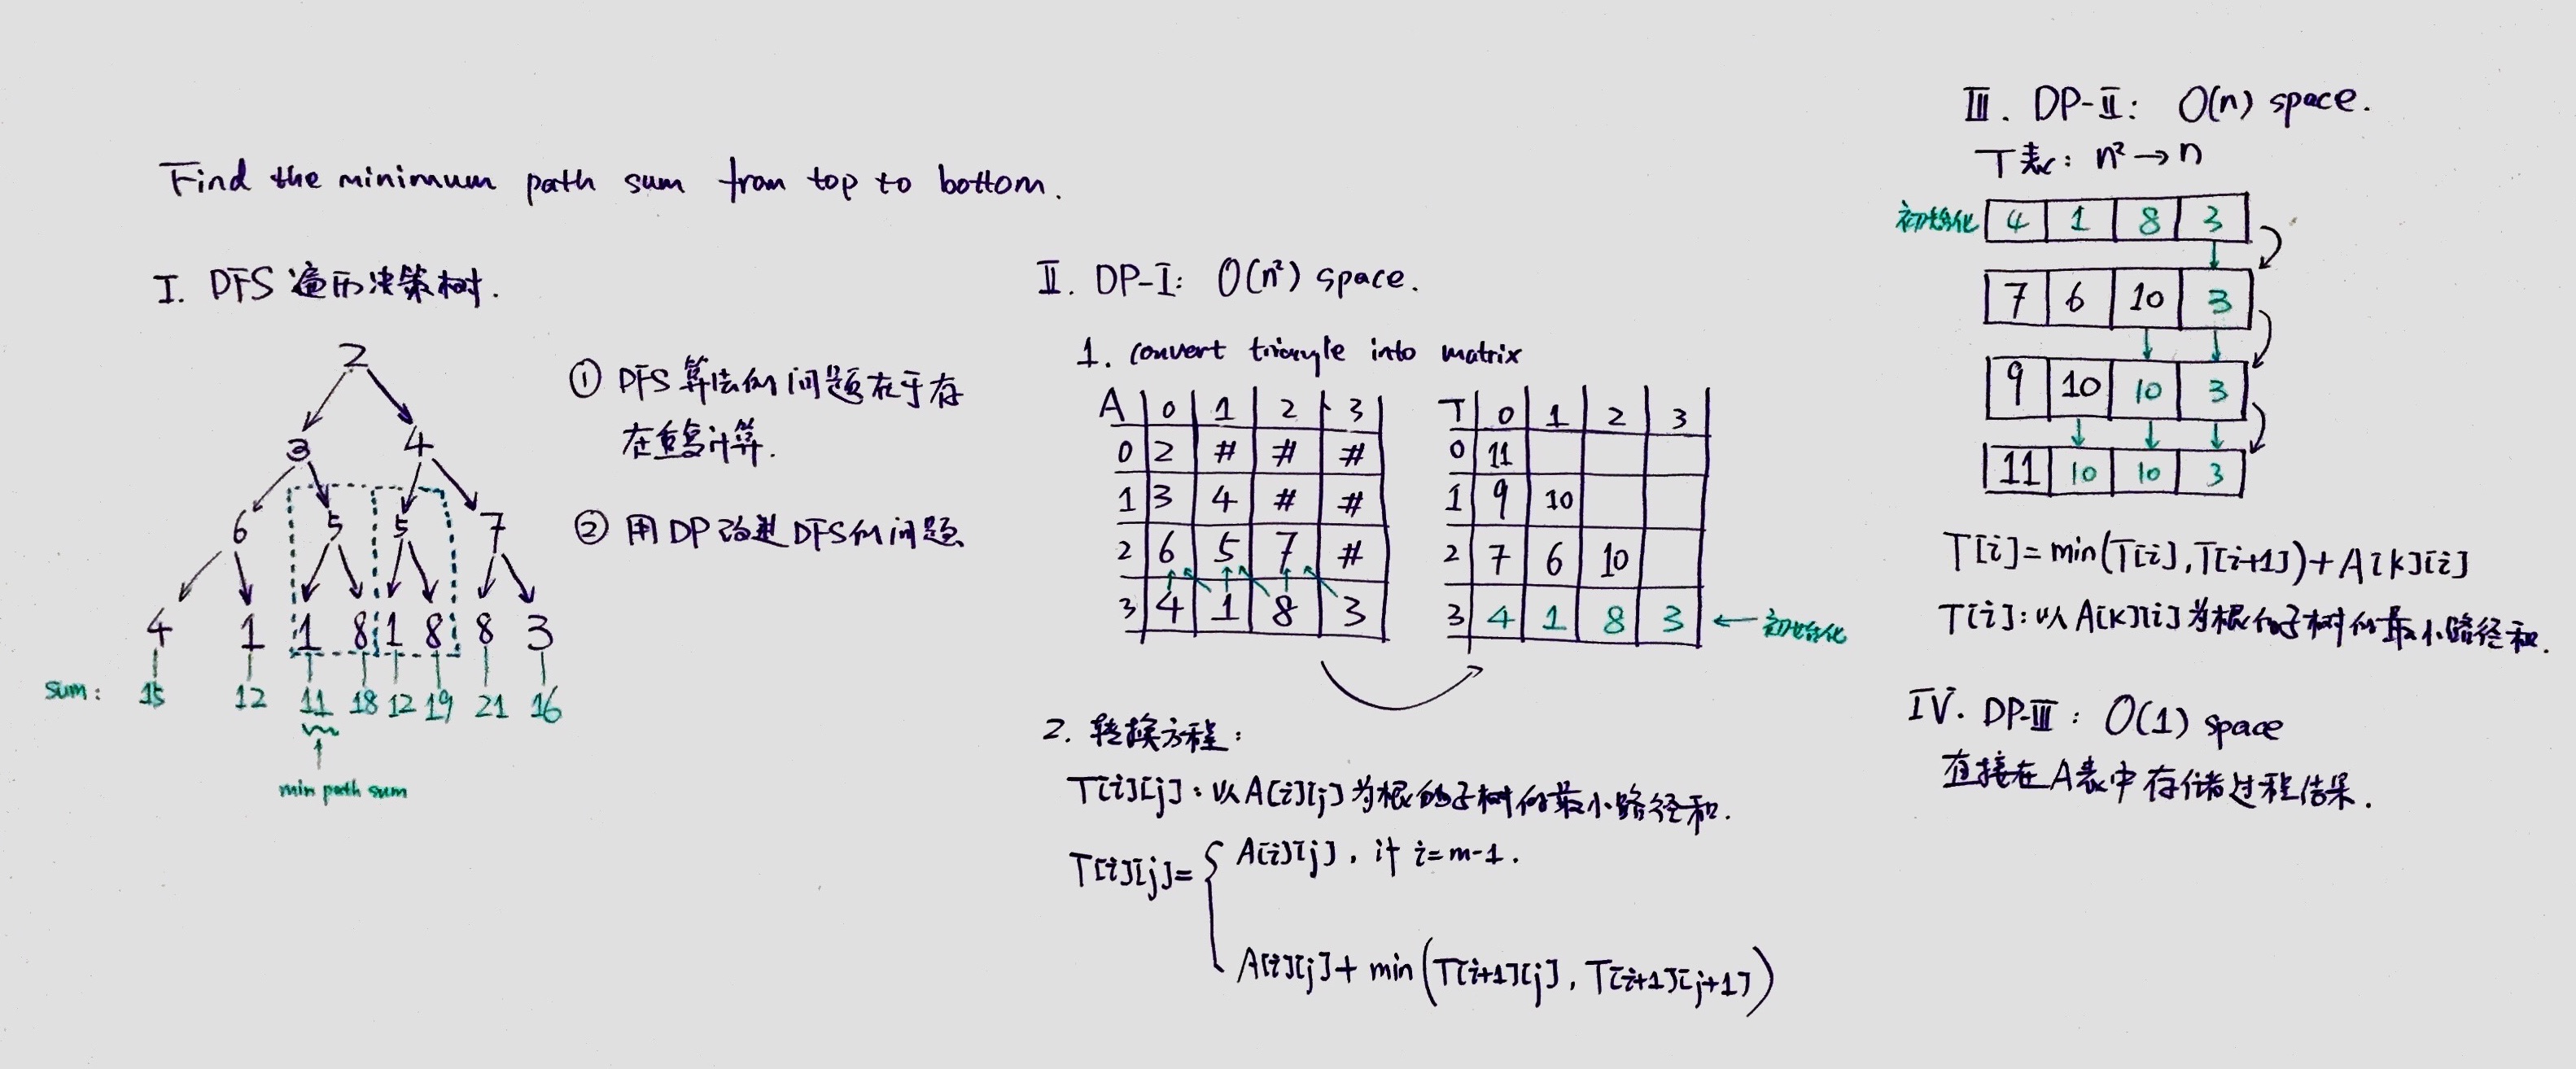 Find the minimum path sum from top to bottom.
I. DFS 遍历决策树.
2
3 4
6 5 5 7
4 1 1 8 1 8 8 3
sum: 15 12 11 18 12 19 21 16
min path sum
① DFS 算法的问题在于存
在重复计算.
② 用DP改进DFS的问题
II. DP-I: O(n²) space.
1. convert triangle into matrix
A 0 1 2 3
0 2 # # #
1 3 4 # #
2 6 5 7 #
3 4 1 8 3
T 0 1 2 3
0 11
1 9 10
2 7 6 10
3 4 1 8 3 ← 初始化
2. 转换方程:
T[i][j]: 以A[i][j]为根的子树的最小路径和.
T[i][j]= { A[i][j], if i=m-1.
A[i][j]+ min(T[i+1][j], T[i+1][j+1])
III. DP-II: O(n) space.
T表: n²→n
初始化 4 1 8 3
7 6 10 3
9 10 10 3
11 10 10 3
T[i]=min(T[i],T[i+1])+A[k][i]
T[i]: 以A[k][i]为根的子树的最小路径和.
IV. DP-III: O(1) space
直接在A表中存储过程结果.